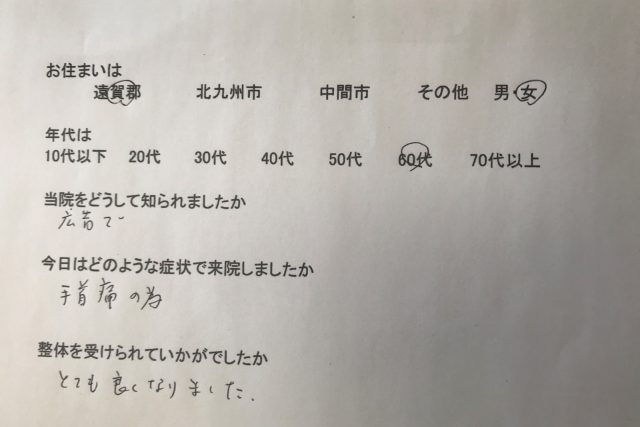 お住まいは
遠賀郡 北九州市 中間市 その他 男・女
年代は
10代以下 20代 30代 40代 50代 60代 70代以上
当院をどうして知られましたか
広告で
今日はどのような症状で来院しましたか
手首痛の為
整体を受けられていかがでしたか
とても良くなりました.